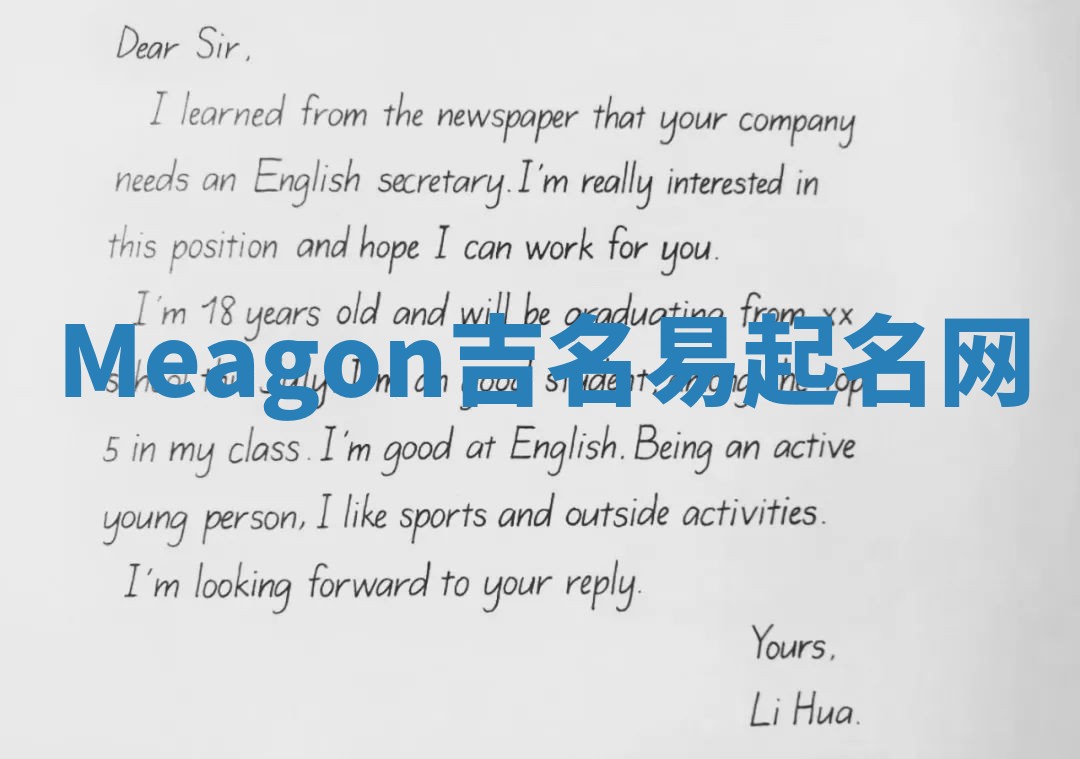 Dear Sir,
I learned from the newspaper that your company
needs an English secretary. I'm really interested in
this position and hope I can work for you.
I'm 18 years old and will be graduating from xx
Meagon吉名易起名网
school this July. I'm an good student, among the top
5 in my class. I'm good at English. Being an active
young person, I like sports and outside activities.
I'm looking forward to your reply.
Yours,
Li Hua.